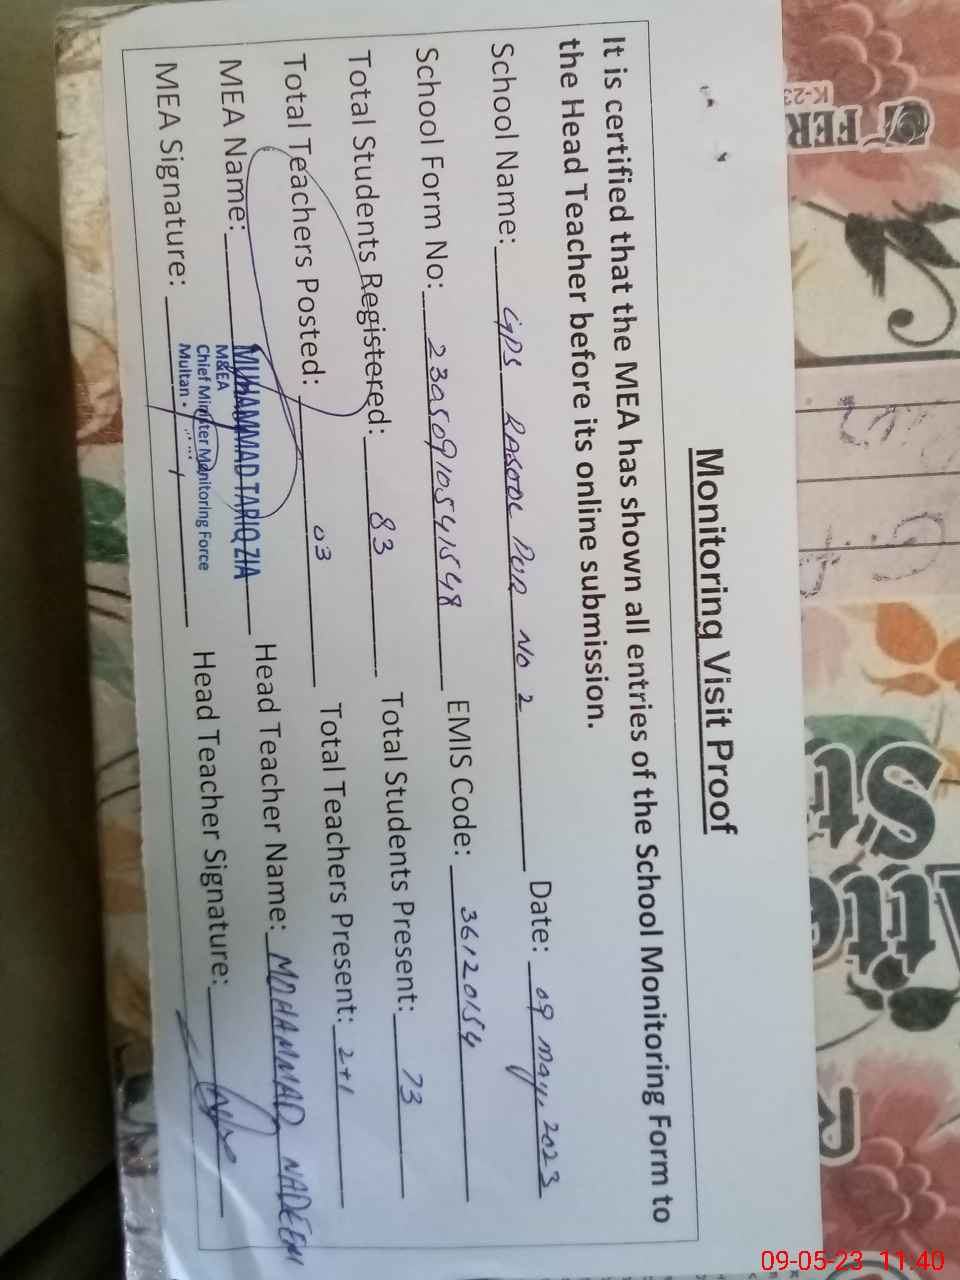 Monitoring Visit Proof
It is certified that the MEA has shown all entries of the School Monitoring Form to
the Head Teacher before its online submission.
School Name: GPS RASOOL PUR NO 2 Date: 09 May, 2023
School Form No: 23050910541548 EMIS Code: 36120154
Total Students Registered: 83 Total Students Present: 73
Total Teachers Posted: 03 Total Teachers Present: 2+1
MEA Name: MUHAMMAD TARIQ ZIA Head Teacher Name: MOHAMMAD NADEEM
M&EA
Chief Minister Monitoring Force
Multan.
MEA Signature: Head Teacher Signature:
K-23
09-05-23 11:40